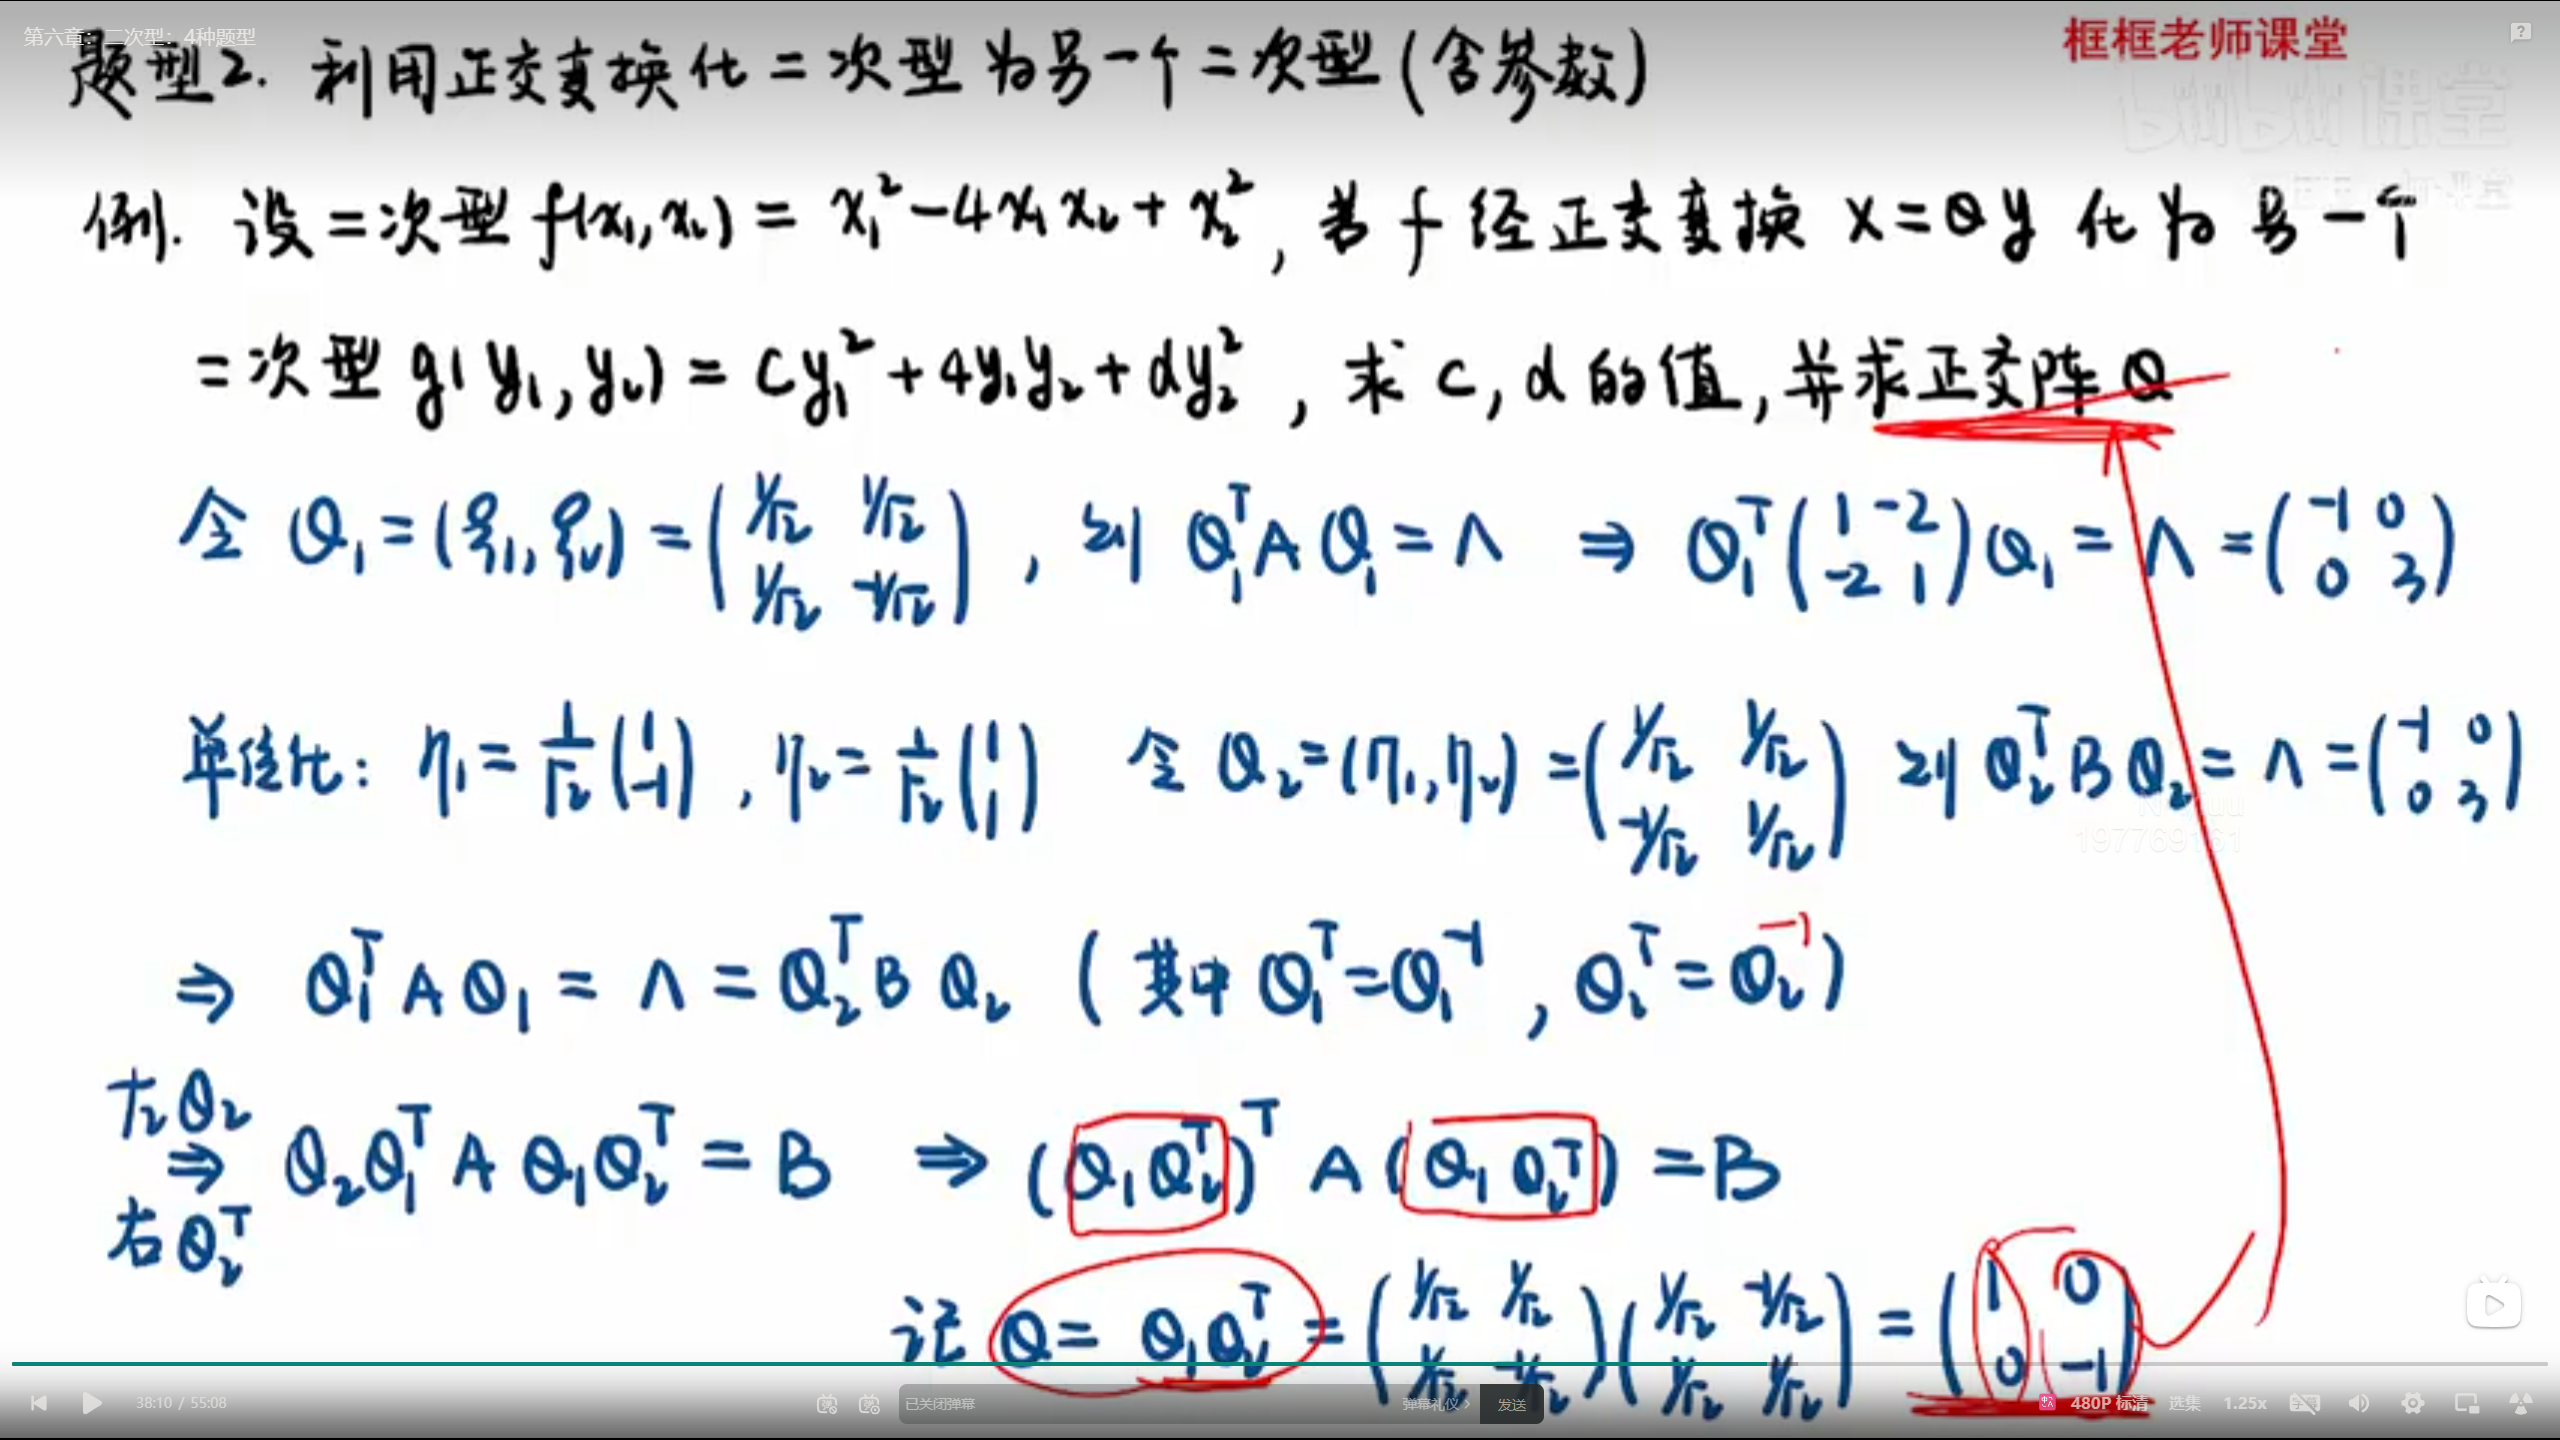 第六章：二次型：4种题型
框框老师课堂
题型2. 利用正交变换化二次型为另一个二次型(含参数)
bilibili 课堂
例. 设二次型 f(x₁,x₂) = x₁² - 4x₁x₂ + x₂², 若 f 经正交变换 x = Qy 化为另一个
二次型 g(y₁,y₂) = cy₁² + 4y₁y₂ + dy₂², 求 c, d 的值, 并求正交阵 Q
令 Q₁ = (ξ₁, ξ₂) = (1/√2 1/√2; 1/√2 -1/√2), 则 Q₁ᵀAQ₁ = Λ ⇒ Q₁ᵀ(1 -2; -2 1)Q₁ = Λ = (-1 0; 0 3)
单位化: η₁ = 1/√2 (1; -1), η₂ = 1/√2 (1; 1) 令 Q₂ = (η₁, η₂) = (1/√2 1/√2; -1/√2 1/√2) 则 Q₂ᵀBQ₂ = Λ = (-1 0; 0 3)
⇒ Q₁ᵀAQ₁ = Λ = Q₂ᵀBQ₂ (其中 Q₁ᵀ = Q₁⁻¹, Q₂ᵀ = Q₂⁻¹)
左Q₂
⇒ Q₂Q₁ᵀAQ₁Q₂ᵀ = B ⇒ (Q₁Q₂ᵀ)ᵀA(Q₁Q₂ᵀ) = B
右Q₂ᵀ
记 Q = Q₁Q₂ᵀ = (1/√2 1/√2; 1/√2 -1/√2)(1/√2 -1/√2; 1/√2 1/√2) = (1 0; 0 -1)
38:10 / 55:08
已关闭弹幕
弹幕礼仪 ›
发送
480P 标清
选集
1.25x